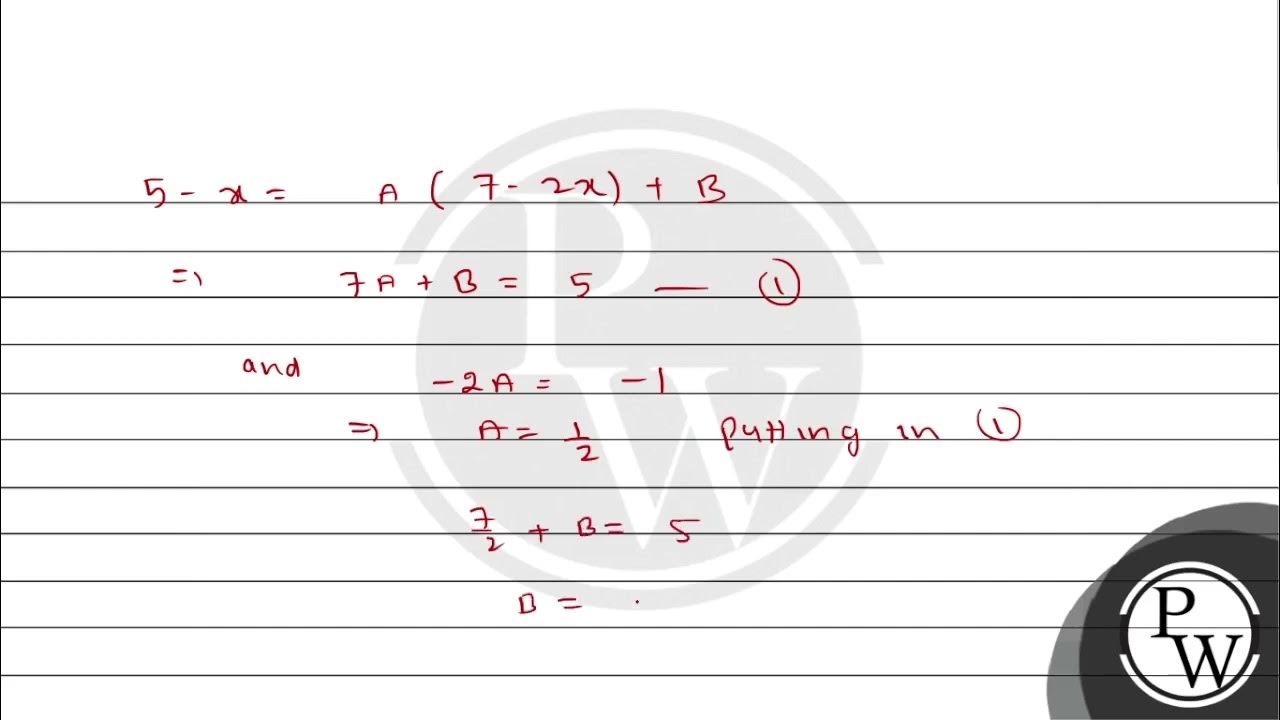 5 - x = A ( 7 - 2x ) + B
⇒ 7A + B = 5 — ①
and -2A = -1
⇒ A = 1/2 putting in ①
7/2 + B = 5
B =
PW
PW